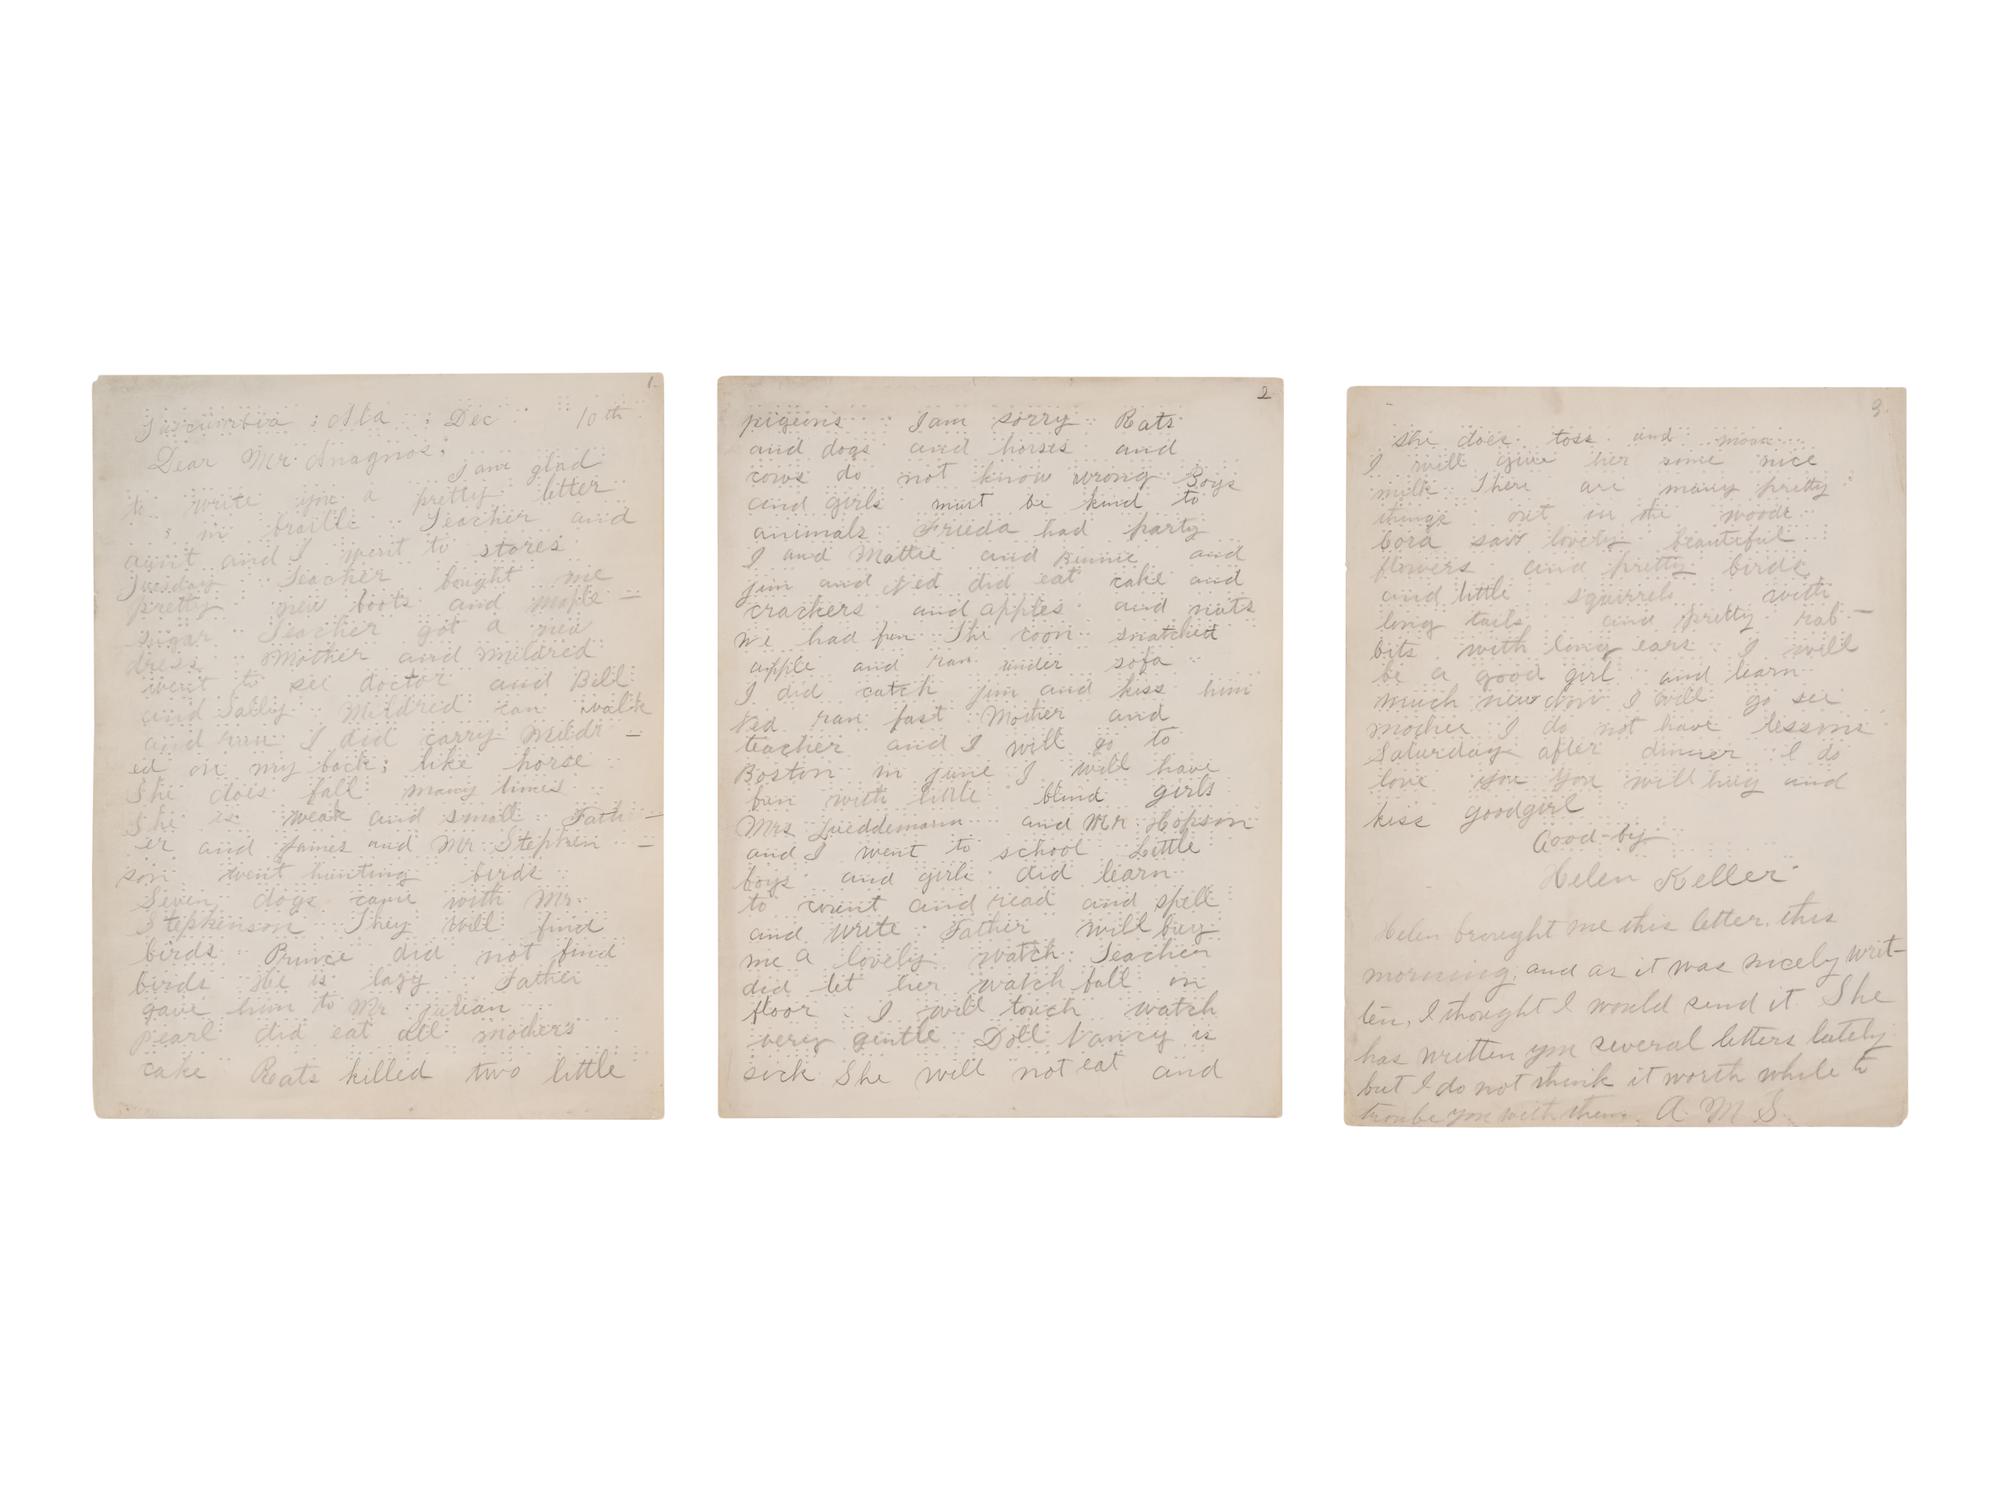 1.
Tuscumbia : Ala : Dec 10th
Dear Mr. Anagnos;
I am glad
to write you a pretty letter
in braille Teacher and
aunt and I went to stores
Tuesday Teacher bought me
pretty new boots and maple-
sugar Teacher got a new
dress Mother and Mildred
went to see doctor and Bill
and Sally Mildred can walk
and run I did carry Mildr-
ed on my back; like horse
She does fall many times
She is weak and small Fath-
er and James and Mr. Stephen-
son went hunting birds
Seven dogs came with Mr.
Stephenson They will find
birds Prince did not find
birds He is lazy Father
gave him to Mr Julian
pearl did eat all mother's
cake Rats killed two little
2
pigeons I am sorry Rats
and dogs and horses and
cows do not know wrong Boys
and girls must be kind to
animals Frieda had party
I and Mattie and Binnie and
jim and Ned did eat cake and
crackers and apples and nuts
we had fun The coon snatched
apple and ran under sofa
I did catch jim and kiss him
Ned ran fast Mother and
teacher and I will go to
Boston in june I will have
fun with little blind girls
Mrs Lueddemann and Mr. Hopson
and I went to school Little
boys and girls did learn
to count and read and spell
and write Father will buy
me a lovely watch Teacher
did let her watch fall on
floor I will touch watch
very gentle Doll Nancy is
sick She will not eat and
3.
she does toss and moan
I will give her some nice
milk There are many pretty
things out in the woods
Cora saw lovely beautiful
flowers and pretty birds
and little squirrels with
long tails and pretty rab-
bits with long ears I will
be a good girl and learn
much new Now I will go see
mother I do not have lessons
Saturday after dinner I do
love you You will hug and
kiss good girl
Good-by
Helen Keller
Helen brought me this letter, this
morning, and as it was nicely writ-
ten, I thought I would send it. She
has written you several letters lately
but I do not think it worth while to
trouble you with them. A. M. S.